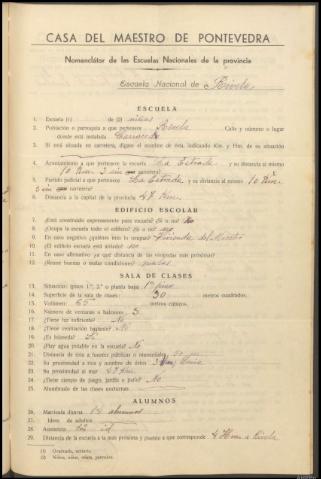 CASA DEL MAESTRO DE PONTEVEDRA
Nomenclátor de las Escuelas Nacionales de la provincia
Escuela Nacional de Rivela
ESCUELA
1. Escuela (1) de (2) niñas
2. Población o parroquia a que pertenece Rivela Calle y número o lugar
donde está instalada
3. Si está situada en carretera, dígase el nombre de ésta, indicando Km. y Hm. de su situación
4. Ayuntamiento a que pertenece la escuela La Estrada y su distancia al mismo
10 Km. sin carretera?
5. Partido judicial a que pertenece La Estrada y su distancia al mismo 10 Km.
sin carretera?
6. Distancia a la capital de la provincia 47 Km.
EDIFICIO ESCOLAR
7. ¿Está construido expresamente para escuela? Sí o no? No
8. ¿Ocupa la escuela todo el edificio? Sí o no? no
9. En caso negativo ¿quiénes más lo ocupan? Vivienda del
10. ¿El edificio escuela está aislado? no
11. En caso afirmativo ¿a qué distancia de las viviendas más próximas?
12. ¿Reune buenas o malas condiciones? malas
SALA DE CLASES
13. Situación: ¿piso 1.º, 2.º o planta baja? 1º piso
14. Superficie de la sala de clases: 30 metros cuadrados.
15. Volumen: metros cúbicos.
16. Número de ventanas o balcones 3
17. ¿Tiene luz suficiente? No
18. ¿Tiene ventilación bastante? No
19. ¿Es húmeda? Sí
20. ¿Hay agua potable en la escuela? No
21. Distancia de ésta a fuentes públicas o manantiales
22. Su proximidad a ríos y nombre de éstos
23. Su proximidad al mar
24. ¿Tiene campo de juego, jardín o patio? No
25. Alumbrado de las clases nocturnas
ALUMNOS
26. Matrícula diaria alumnos
27. Idem. de adultos
28. Asistencia id
29. Distancia de la escuela a la más próxima y pueblo a que corresponde a Rivela
(1) Graduada, unitaria.
(2) Niños, niñas, mixta, párvulos.